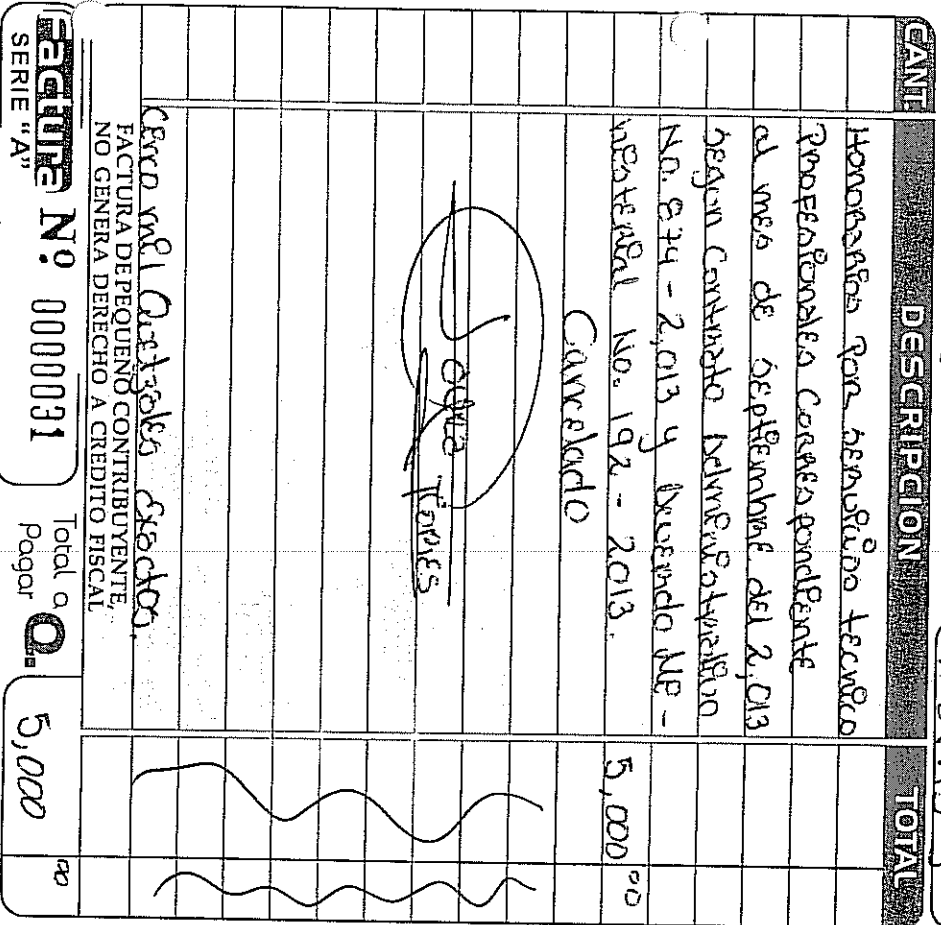 CANT. DESCRIPCION TOTAL
Honorarios Por servicios tecnico
Profesionales Correspondiente
al mes de septiembre del 2,013
segun Contrato Administrativo
No. 874 - 2,013 y Acuerdo Mi-
nisterial No. 192 - 2013. 5,000 00
Cancelado
Cinco mil Quetzales Exactos.
FACTURA DE PEQUEÑO CONTRIBUYENTE,
NO GENERA DERECHO A CREDITO FISCAL
Factura Nº 0000031 Total a Pagar Q. 5,000 00
SERIE "A"